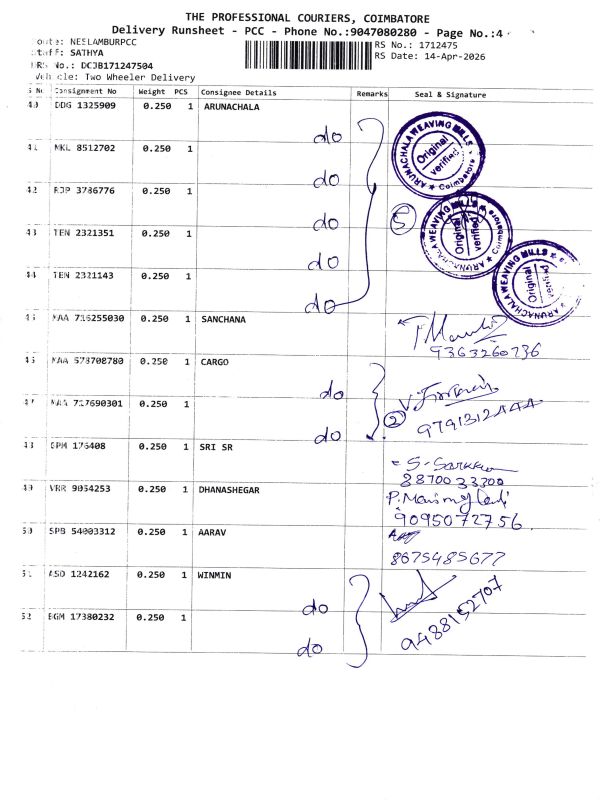 THE PROFESSIONAL COURIERS, COIMBATORE
Delivery Runsheet - PCC - Phone No.:9047080280 - Page No.:4
oute: NEELAMBURPCC
taff: SATHYA
DRS No.: DCJB171247504
Vehicle: Two Wheeler Delivery
RS No.: 1712475
RS Date: 14-Apr-2026
S No Consignment No Weight PCS Consignee Details Remarks Seal & Signature
40 DDG 1325909 0.250 1 ARUNACHALA
do
41 NKL 8512702 0.250 1
do
42 RJP 3786776 0.250 1
do
43 TEN 2321351 0.250 1
do
44 TEN 2321143 0.250 1
do
5
ARUNACHALA WEAVING MILLS
Original verified
Coimbatore
ARUNACHALA WEAVING MILLS
Original verified
Coimbatore
ARUNACHALA WEAVING MILLS
Original verified
45 MAA 716255030 0.250 1 SANCHANA
9363260736
46 MAA 578708780 0.250 1 CARGO
do
47 MAA 717690301 0.250 1
do
2
9791312444
48 GPM 176408 0.250 1 SRI SR
8870033300
49 VRR 9054253 0.250 1 DHANASHEGAR
9095072756
50 SPB 54003312 0.250 1 AARAV
8675485677
51 ASD 1242162 0.250 1 WINMIN
do
52 BGM 17380232 0.250 1
do
9488152707